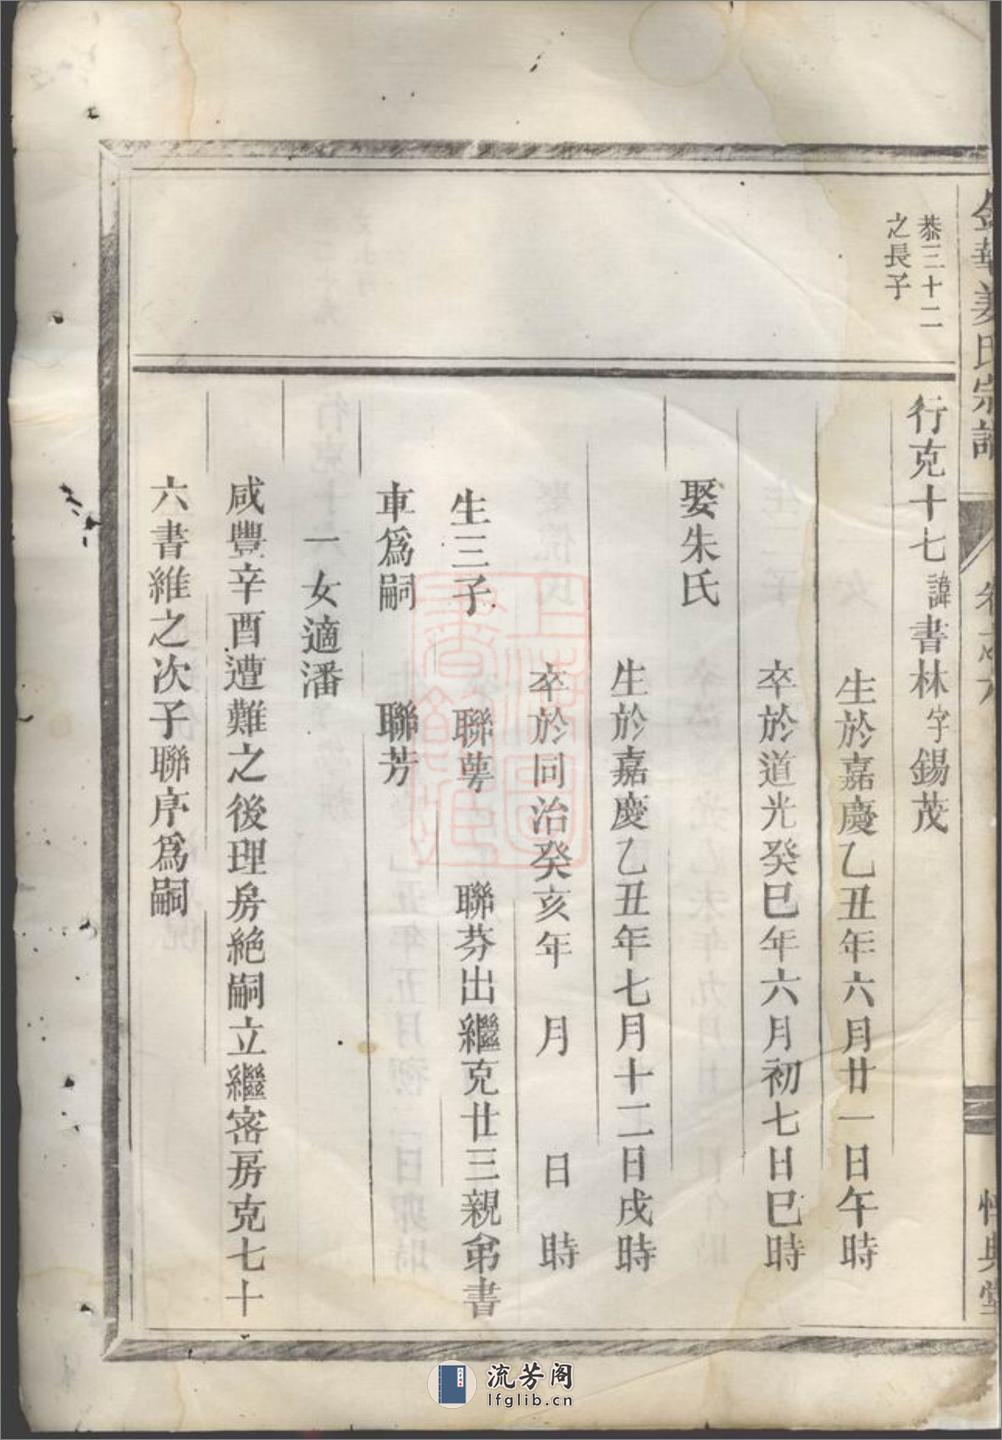 金華姜氏宗譜
恭三十二
之長子
行克十七諱書林字錫茂
生於嘉慶乙丑年六月廿一日午時
卒於道光癸巳年六月初七日巳時
娶朱氏
生於嘉慶乙丑年七月十二日戌時
卒於同治癸亥年 月 日 時
生三子 聯萼 聯芬出繼克廿三親弟書
車為嗣 聯芳
一女適潘
咸豐辛酉遭難之後理房絶嗣立繼密房克七十
六書維之次子聯序為嗣
流芳阁
lfglib.cn